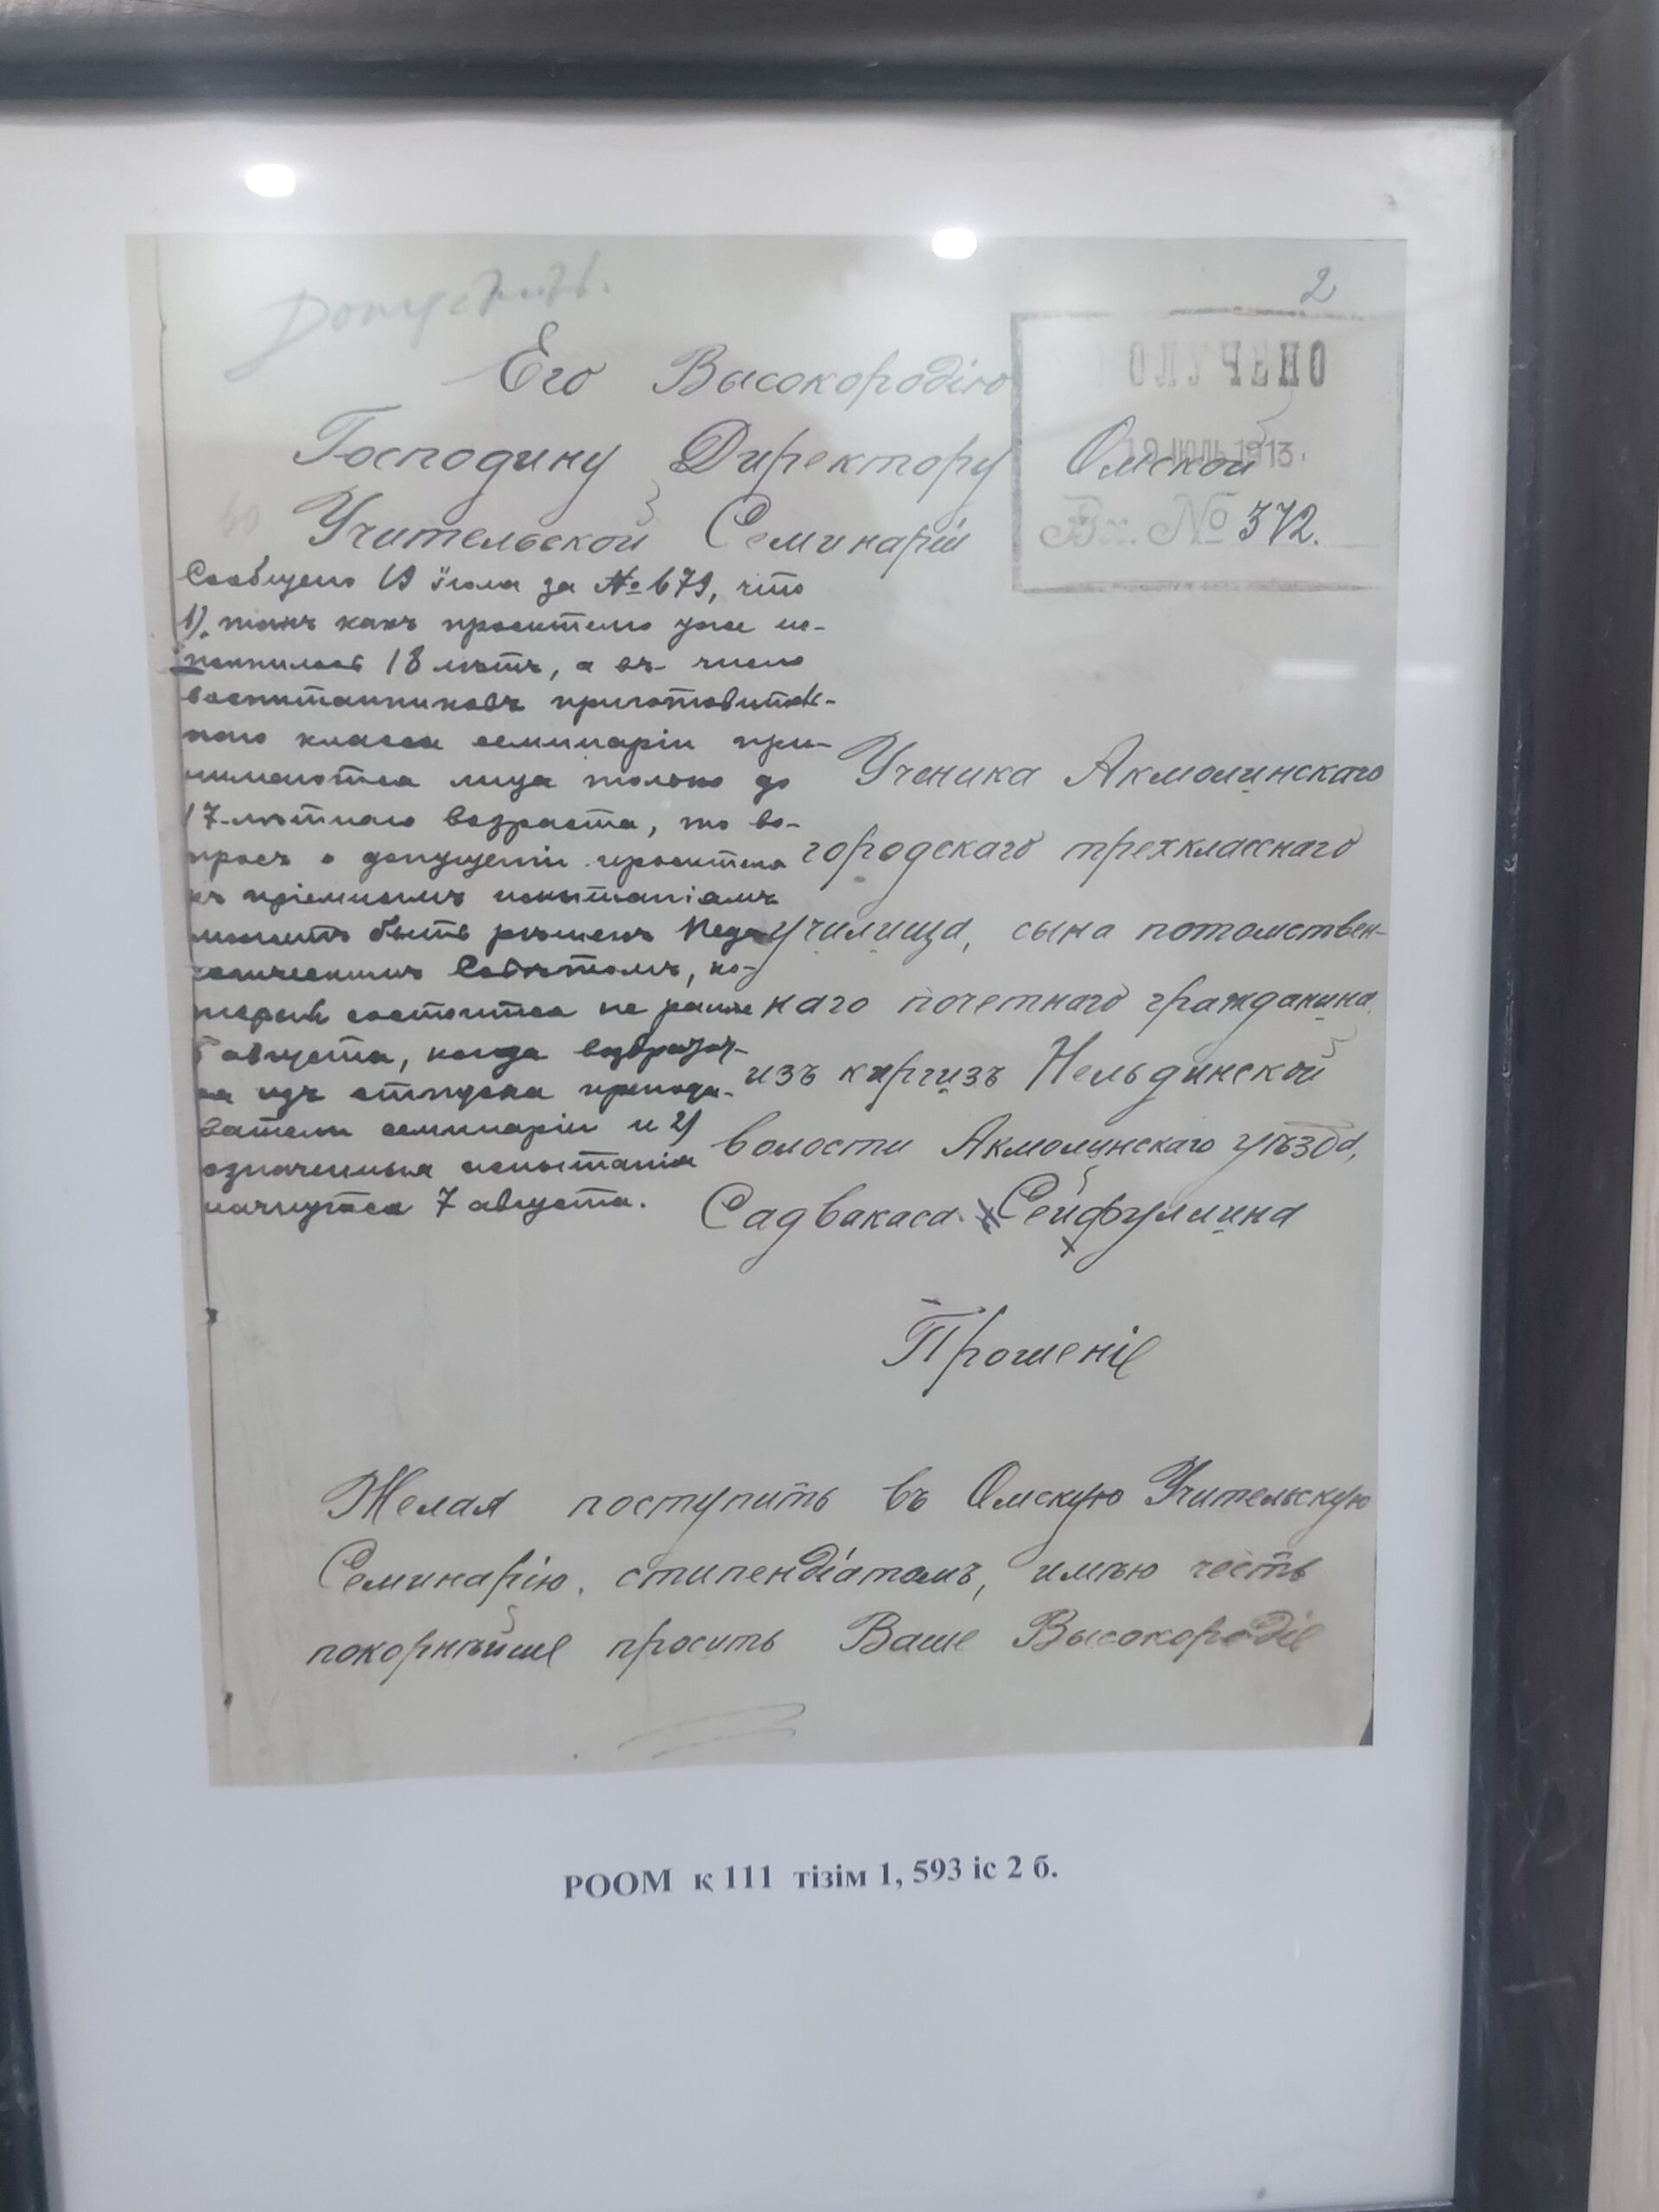 Допустить.
2
Его Высокородію
ПОЛУЧЕНО
Господину Директору Омской
19 ІЮЛЬ 1913.
Учительской Семинаріи
Вх. № 372.
Сообщено 19 іюля за № 679, что
1), такъ какъ просителю уже ис-
полнилось 18 лѣтъ, а въ число
воспитанниковъ приготовитель-
наго класса семинаріи при-
нимаются лица только до
17-лѣтняго возраста, то во-
просъ о допущеніи просителя
къ пріемнымъ испытаніямъ
можетъ быть рѣшенъ Педа-
гогическимъ Совѣтомъ, ко-
торый состоится не ранѣе
5 августа, когда возвратят-
ся изъ отпуска препода-
ватели семинаріи и 2)
означенныя испытанія
начнутся 7 августа.
Ученика Акмолинскаго
городскаго трехкласснаго
училища, сына потомствен-
наго почетнаго гражданина
изъ киргизъ Нельдинской
волости Акмолинскаго уѣзда,
Садвакаса Сейфуллина
Прошеніе
Желая поступить въ Омскую Учительскую
Семинарію, стипендіатомъ, имѣю честь
покорнѣйше просить Ваше Высокородіе
РООМ қ 111 тізім 1, 593 іс 2 б.